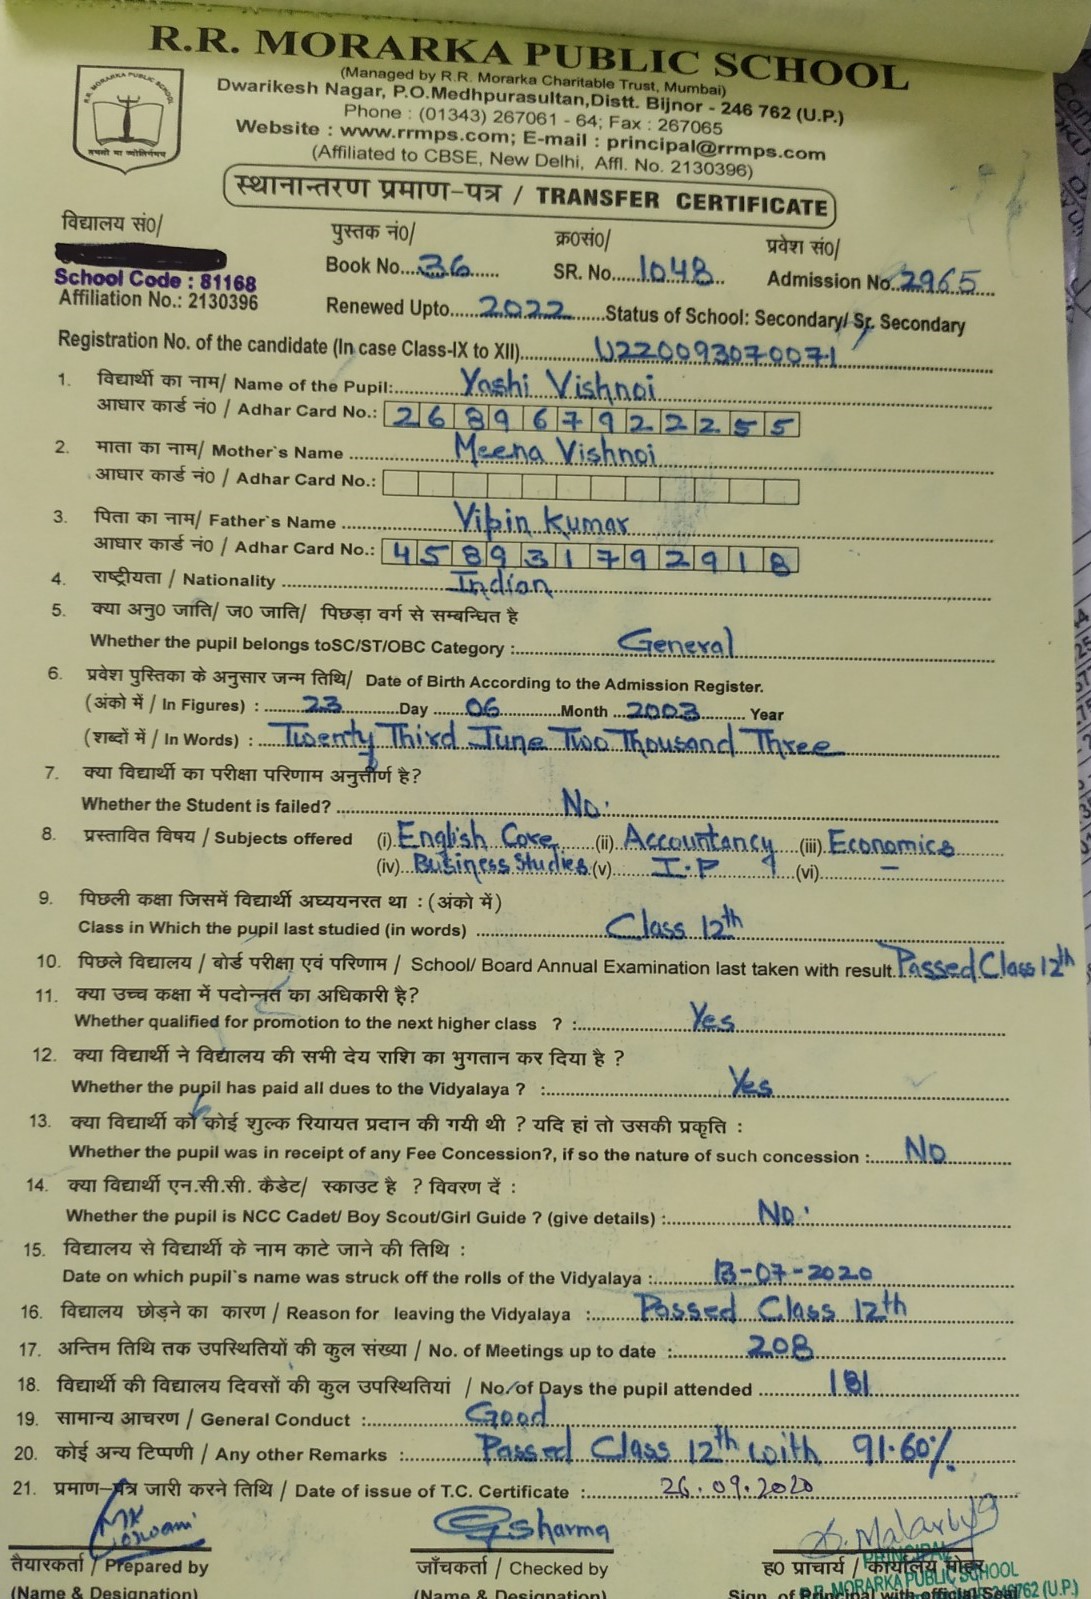 R.R. MORARKA PUBLIC SCHOOL
(Managed by R.R. Morarka Charitable Trust, Mumbai)
Dwarikesh Nagar, P.O.Medhpurasultan,Distt. Bijnor - 246 762 (U.P.)
Phone : (01343) 267061 - 64; Fax : 267065
Website : www.rrmps.com; E-mail : principal@rrmps.com
(Affiliated to CBSE, New Delhi, Affl. No. 2130396)
R.R. MORARKA PUBLIC SCHOOL
तमसो मा ज्योतिर्गमय
स्थानान्तरण प्रमाण-पत्र / TRANSFER CERTIFICATE
विद्यालय सं०/ पुस्तक नं०/ क्र०सं०/ प्रवेश सं०/
Book No. 36 SR. No. 1048 Admission No. 2965
School Code : 81168
Affiliation No.: 2130396 Renewed Upto 2022 Status of School: Secondary/ Sr. Secondary
Registration No. of the candidate (In case Class-IX to XII) U220093070071
1. विद्यार्थी का नाम/ Name of the Pupil: Yashi Vishnoi
आधार कार्ड नं० / Adhar Card No.: 268967922255
2. माता का नाम/ Mother`s Name Meena Vishnoi
आधार कार्ड नं० / Adhar Card No.:
3. पिता का नाम/ Father`s Name Vipin Kumar
आधार कार्ड नं० / Adhar Card No.: 458931792918
4. राष्ट्रीयता / Nationality Indian
5. क्या अनु० जाति/ ज० जाति/ पिछड़ा वर्ग से सम्बन्धित है
Whether the pupil belongs toSC/ST/OBC Category : General
6. प्रवेश पुस्तिका के अनुसार जन्म तिथि/ Date of Birth According to the Admission Register.
(अंको में / In Figures) : 23 Day 06 Month 2003 Year
(शब्दों में / In Words) : Twenty Third June Two Thousand Three
7. क्या विद्यार्थी का परीक्षा परिणाम अनुत्तीर्ण है?
Whether the Student is failed? No.
8. प्रस्तावित विषय / Subjects offered (i) English Core (ii) Accountancy (iii) Economics
(iv) Business Studies (v) I.P (vi) –
9. पिछली कक्षा जिसमें विद्यार्थी अध्ययनरत था : (अंको में)
Class in Which the pupil last studied (in words) Class 12th
10. पिछले विद्यालय / बोर्ड परीक्षा एवं परिणाम / School/ Board Annual Examination last taken with result. Passed Class 12th
11. क्या उच्च कक्षा में पदोन्नत का अधिकारी है?
Whether qualified for promotion to the next higher class ? : Yes
12. क्या विद्यार्थी ने विद्यालय की सभी देय राशि का भुगतान कर दिया है ?
Whether the pupil has paid all dues to the Vidyalaya ? : Yes
13. क्या विद्यार्थी को कोई शुल्क रियायत प्रदान की गयी थी ? यदि हां तो उसकी प्रकृति :
Whether the pupil was in receipt of any Fee Concession?, if so the nature of such concession : No
14. क्या विद्यार्थी एन.सी.सी. कैडेट/ स्काउट है ? विवरण दें :
Whether the pupil is NCC Cadet/ Boy Scout/Girl Guide ? (give details) : No.
15. विद्यालय से विद्यार्थी के नाम काटे जाने की तिथि :
Date on which pupil`s name was struck off the rolls of the Vidyalaya : 13-07-2020
16. विद्यालय छोड़ने का कारण / Reason for leaving the Vidyalaya : Passed Class 12th
17. अन्तिम तिथि तक उपस्थितियों की कुल संख्या / No. of Meetings up to date : 208
18. विद्यार्थी की विद्यालय दिवसों की कुल उपस्थितियां / No. of Days the pupil attended 181
19. सामान्य आचरण / General Conduct : Good
20. कोई अन्य टिप्पणी / Any other Remarks : Passed Class 12th with 91.60%.
21. प्रमाण-पत्र जारी करने तिथि / Date of issue of T.C. Certificate : 26.09.2020
Goswami G.Sharma
तैयारकर्ता / Prepared by जाँचकर्ता / Checked by ह० प्राचार्य / कार्यालय मोहर
(Name & Designation) (Name & Designation) Sign. of Principal with official Seal
PRINCIPAL
R.R. MORARKA PUBLIC SCHOOL
246762 (U.P.)